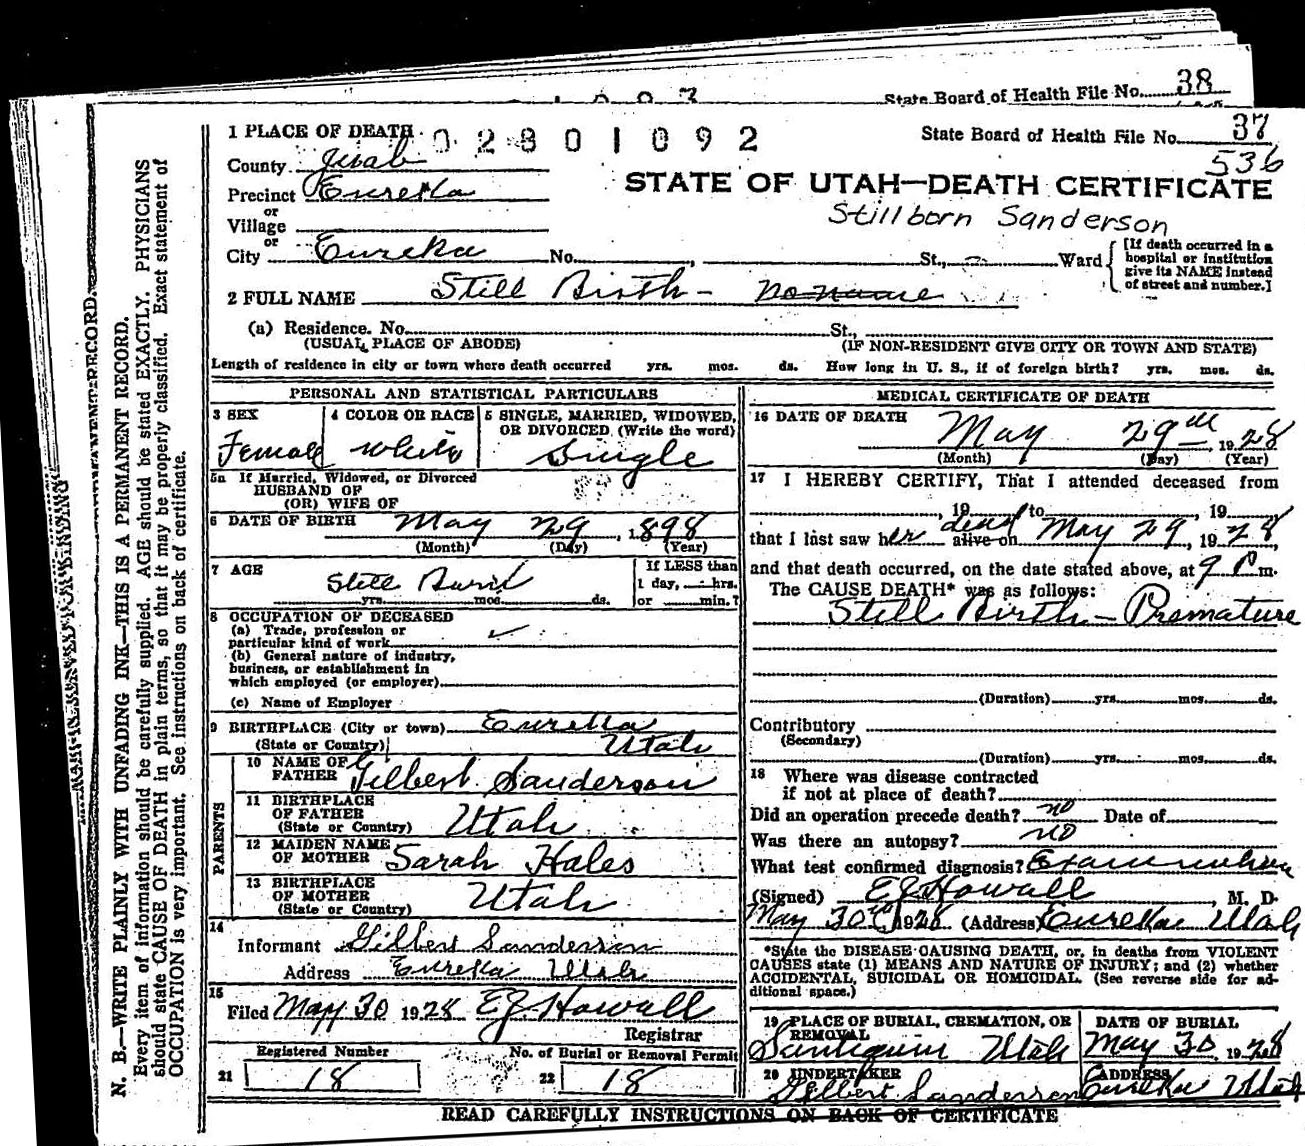 State Board of Health File No. 38
State Board of Health File No. 37
02801092
536
1 PLACE OF DEATH
County Juab
STATE OF UTAH—DEATH CERTIFICATE
Precinct Eureka
Stillborn Sanderson
or
Village
or
City Eureka No. , St., Ward
[If death occurred in a
hospital or institution
give its NAME instead
of street and number.]
2 FULL NAME Still Birth - no name
(a) Residence. No. St.,
(USUAL PLACE OF ABODE) (IF NON-RESIDENT GIVE CITY OR TOWN AND STATE)
Length of residence in city or town where death occurred yrs. mos. ds. How long in U. S., if of foreign birth? yrs. mos. ds.
PERSONAL AND STATISTICAL PARTICULARS
3 SEX 4 COLOR OR RACE 5 SINGLE, MARRIED, WIDOWED,
OR DIVORCED (Write the word)
Female White Single
5a If Married, Widowed, or Divorced
HUSBAND OF
(OR) WIFE OF
6 DATE OF BIRTH May 29, 1898
(Month) (Day) (Year)
7 AGE Still
yrs. mos. ds.
If LESS than
1 day, hrs.
or min.?
8 OCCUPATION OF DECEASED
(a) Trade, profession or
particular kind of work
(b) General nature of industry,
business, or establishment in
which employed (or employer)
(c) Name of Employer
9 BIRTHPLACE (City or town) Eureka
(State or Country) Utah
PARENTS
10 NAME OF
FATHER Gilbert Sanderson
11 BIRTHPLACE
OF FATHER
(State or Country) Utah
12 MAIDEN NAME
OF MOTHER Sarah Hales
13 BIRTHPLACE
OF MOTHER
(State or Country) Utah
14
Informant Gilbert Sanderson
Address Eureka Utah
15
Filed May 30 1928 EJ Howall
Registrar
Registered Number No. of Burial or Removal Permit
21 18 22 18
MEDICAL CERTIFICATE OF DEATH
16 DATE OF DEATH
May 29th, 1928
(Month) (Day) (Year)
17 I HEREBY CERTIFY, That I attended deceased from
, 19 to , 19
that I last saw her dead alive on May 29, 1928,
and that death occurred, on the date stated above, at 9 P m.
The CAUSE DEATH* was as follows:
Still Birth - Premature
(Duration) yrs. mos. ds.
Contributory
(Secondary)
(Duration) yrs. mos. ds.
18 Where was disease contracted
if not at place of death?
Did an operation precede death? no Date of
Was there an autopsy? no
What test confirmed diagnosis? Examination
(Signed) EJ Howall, M. D.
May 30th, 1928 (Address) Eureka Utah
*State the DISEASE CAUSING DEATH, or, in deaths from VIOLENT
CAUSES state (1) MEANS AND NATURE OF INJURY; and (2) whether
ACCIDENTAL, SUICIDAL OR HOMICIDAL. (See reverse side for ad-
ditional space.)
19 PLACE OF BURIAL, CREMATION, OR
REMOVAL
Santaquin Utah
DATE OF BURIAL
May 30 1928
20 UNDERTAKER
Gilbert Sanderson
ADDRESS
Eureka Utah
READ CAREFULLY INSTRUCTIONS ON BACK OF CERTIFICATE
N. B.—WRITE PLAINLY WITH UNFADING INK—THIS IS A PERMANENT RECORD.
Every item of information should be carefully supplied. AGE should be stated EXACTLY. PHYSICIANS
should state CAUSE OF DEATH in plain terms, so that it may be properly classified. Exact statement of
OCCUPATION is very important. See instructions on back of certificate.